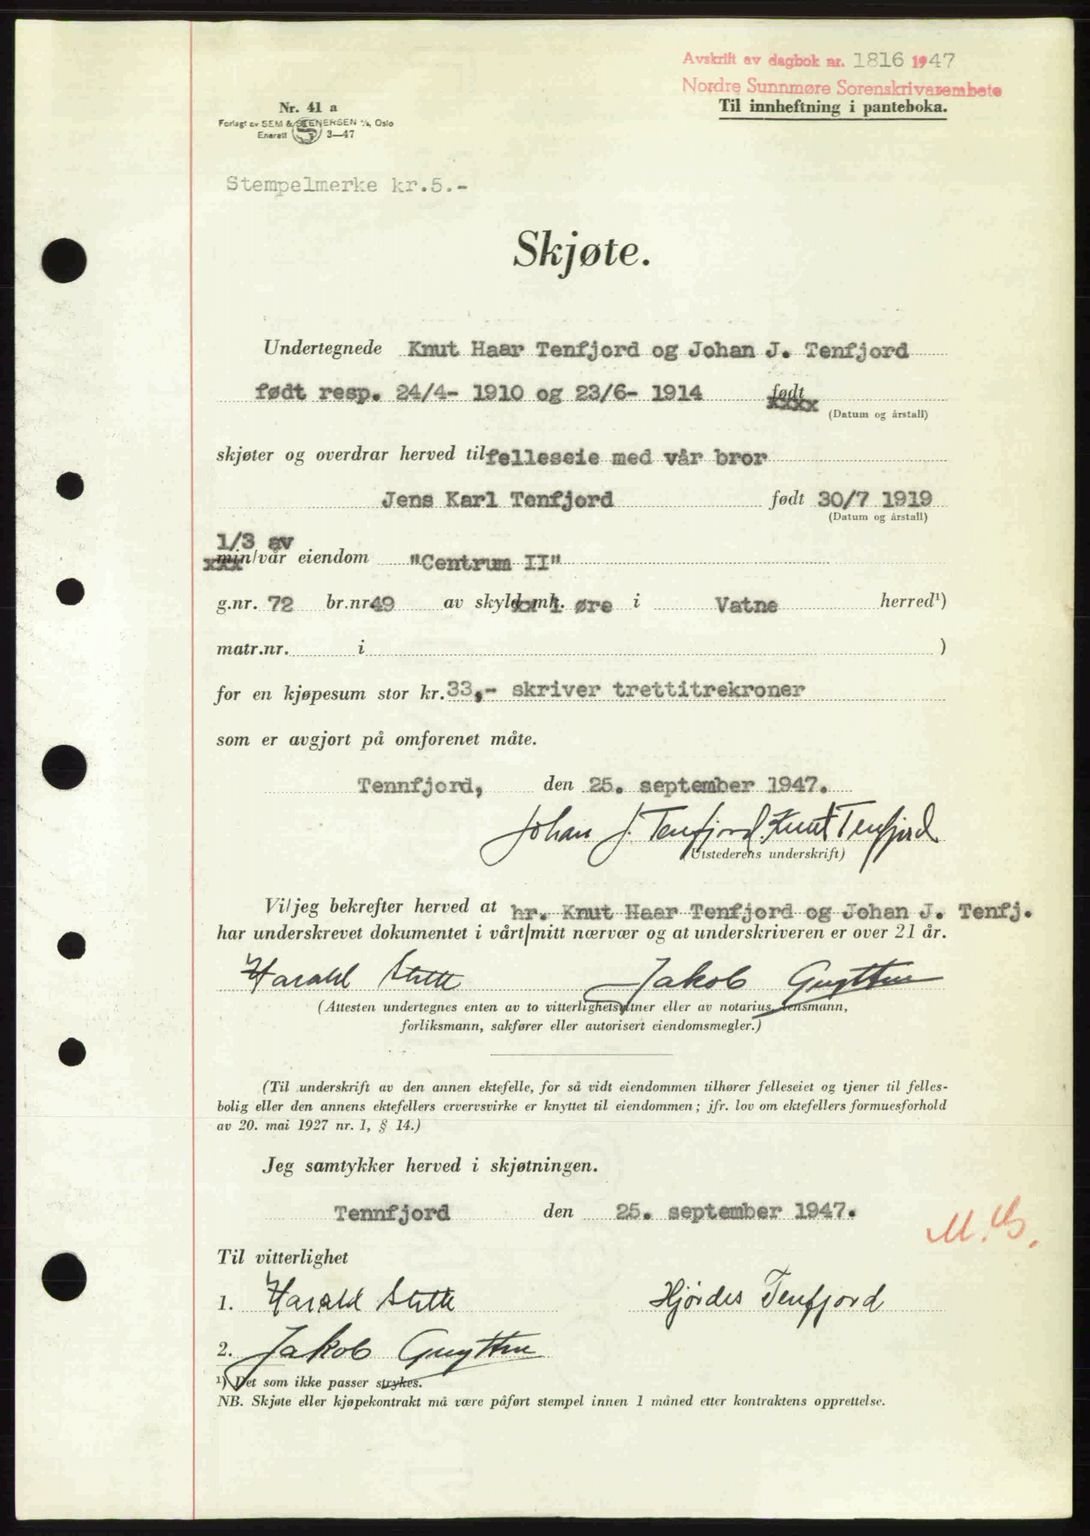 Avskrift av dagbok nr. 1816 1947
Nordre Sunnmøre Sorenskrivarembete
Til innheftning i panteboka.
Nr. 41 a
Forlagt av SEM & STENERSEN A/S, Oslo
Enerett 3—47
Stempelmerke kr.5.-
Skjøte.
Undertegnede Knut Haar Tenfjord og Johan J. Tenfjord
født resp. 24/4- 1910 og 23/6- 1914 født
(Datum og årstall)
skjøter og overdrar herved til felleseie med vår bror
Jens Karl Tenfjord født 30/7 1919
(Datum og årstall)
1/3 av
min/vår eiendom "Centrum II"
g.nr. 72 br.nr 49 av skyld mk. 1 øre i Vatne herred¹)
matr.nr. i )
for en kjøpesum stor kr. 33,- skriver trettitrekroner
som er avgjort på omforenet måte.
Tennfjord, den 25. september 1947.
Johan J. Tenfjord. Knut Tenfjord
(Utstederens underskrift)
Vi/jeg bekrefter herved at hr. Knut Haar Tenfjord og Johan J. Tenfj.
har underskrevet dokumentet i vårt/mitt nærvær og at underskriveren er over 21 år.
Harald Jakob
(Attesten undertegnes enten av to vitterlighetsvitner eller av notarius, lensmann,
forliksmann, sakfører eller autorisert eiendomsmegler.)
(Til underskrift av den annen ektefelle, for så vidt eiendommen tilhører felleseiet og tjener til felles-
bolig eller den annens ektefellers ervervsvirke er knyttet til eiendommen; jfr. lov om ektefellers formuesforhold
av 20. mai 1927 nr. 1, § 14.)
Jeg samtykker herved i skjøtningen.
Tennfjord den 25. september 1947.
Til vitterlighet
1. Harald Hjørdis Tenfjord
2. Jakob
¹) Det som ikke passer strykes.
NB. Skjøte eller kjøpekontrakt må være påført stempel innen 1 måned etter kontraktens opprettelse.